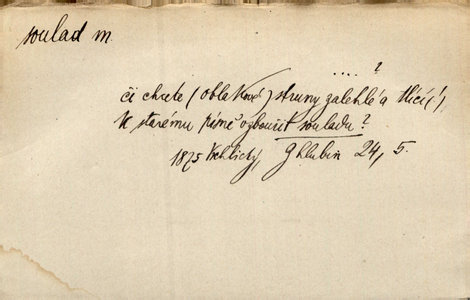 soulad m
.... ?
či chcete (oblakové) struny zalehlé a tlící,
k starému písně vzbouřit souladu?
1875 Vrchlický, Z hlubin 24, 5.